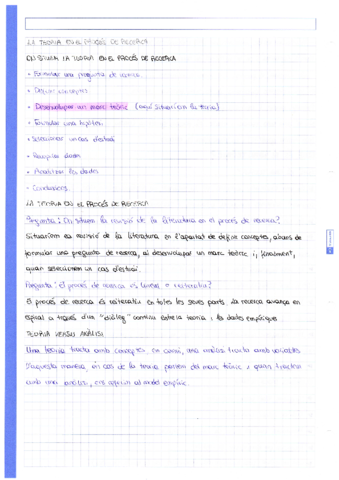 LA TEORIA EN EL PROCÉS DE RECERCA
ON SITUEM LA TEORIA EN EL PROCÉS DE RECERCA
• Formular una pregunta de recerca
• Definir conceptes
• Desenvolupar un marc teòric (aquí situaríem la teoria)
• Formular una hipòtesi
• Seleccionar un cas d'estudi
• Recopilar dades
• Analitzar les dades
• Conclusions
LA TEORIA EN EL PROCÉS DE RECERCA
Pregunta: On situem la revisió de la literatura en el procés de recerca?
Situaríem la revisió de la literatura en l'apartat de definir conceptes, abans de
formular una pregunta de recerca, al desenvolupar un marc teòric i, finalment,
quan seleccionem un cas d'estudi.
Pregunta: El procés de recerca és lineal o reiteratiu?
El procés de recerca és reiteratiu en totes les seves parts. La recerca avança en
espiral a través d'un "diàleg" continu entre la teoria i les dades empíriques.
TEORIA VERSUS ANÀLISI
Una teoria tracta amb conceptes, en canvi, una anàlisi tracta amb variables.
D'aquesta manera, en cas de la teoria partim del marc teòric i quan tractem
amb una anàlisi, ens al model empíric.